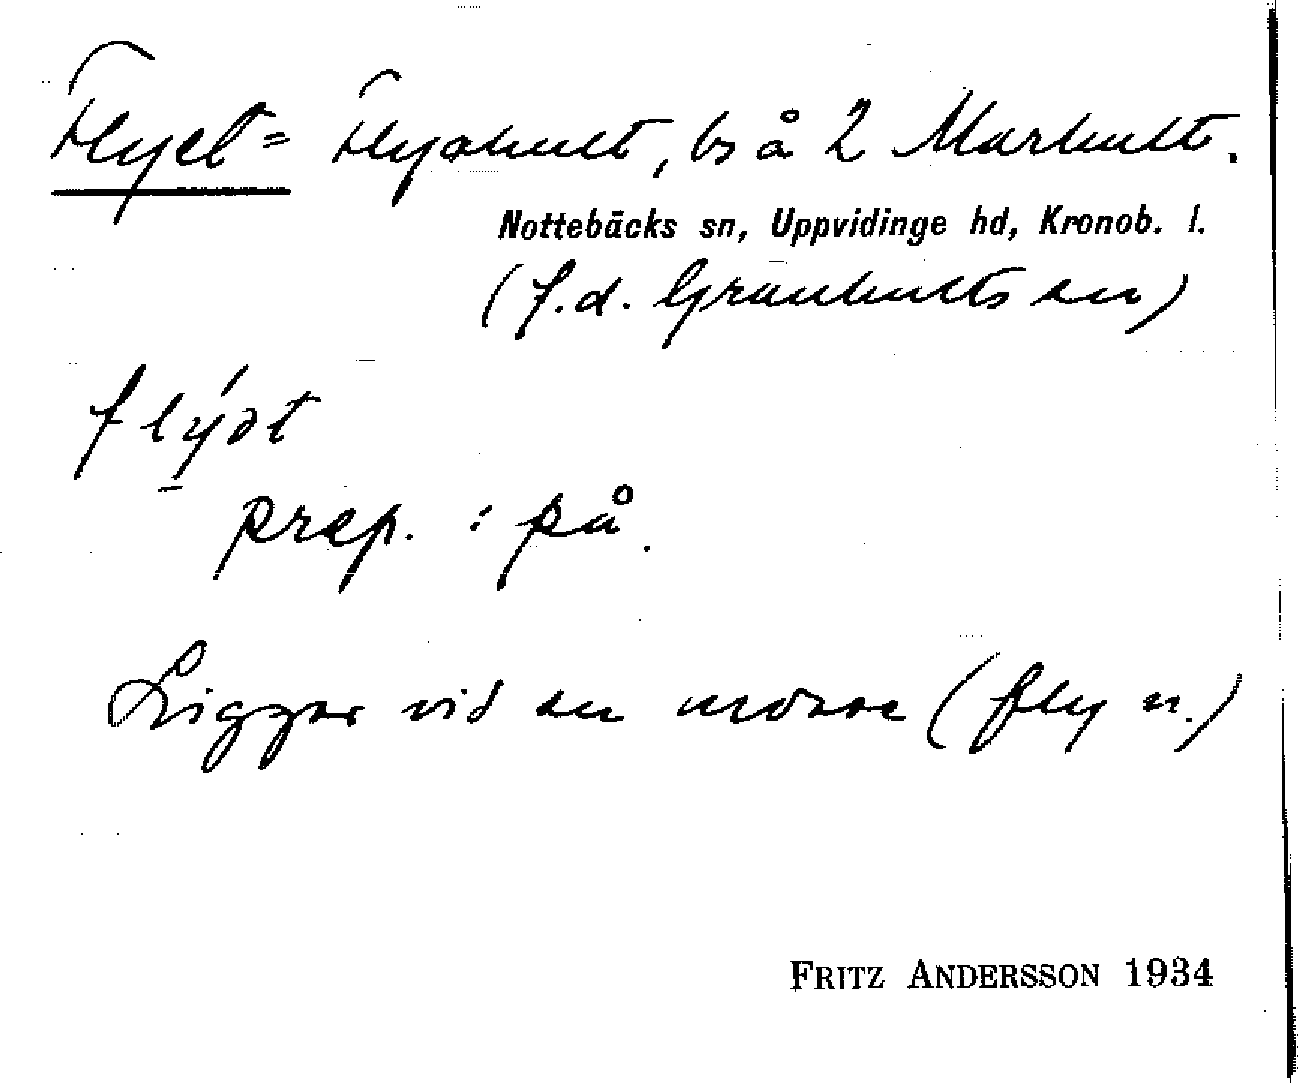 Flyet = Flyahult, bs å 2 Marhult.
Nottebäcks sn, Uppvidinge hd, Kronob. l.
(f.d. Granhults sn)
flýət
prep. : på.
Ligger vid en mosse (fly n.)
FRITZ ANDERSSON 1934